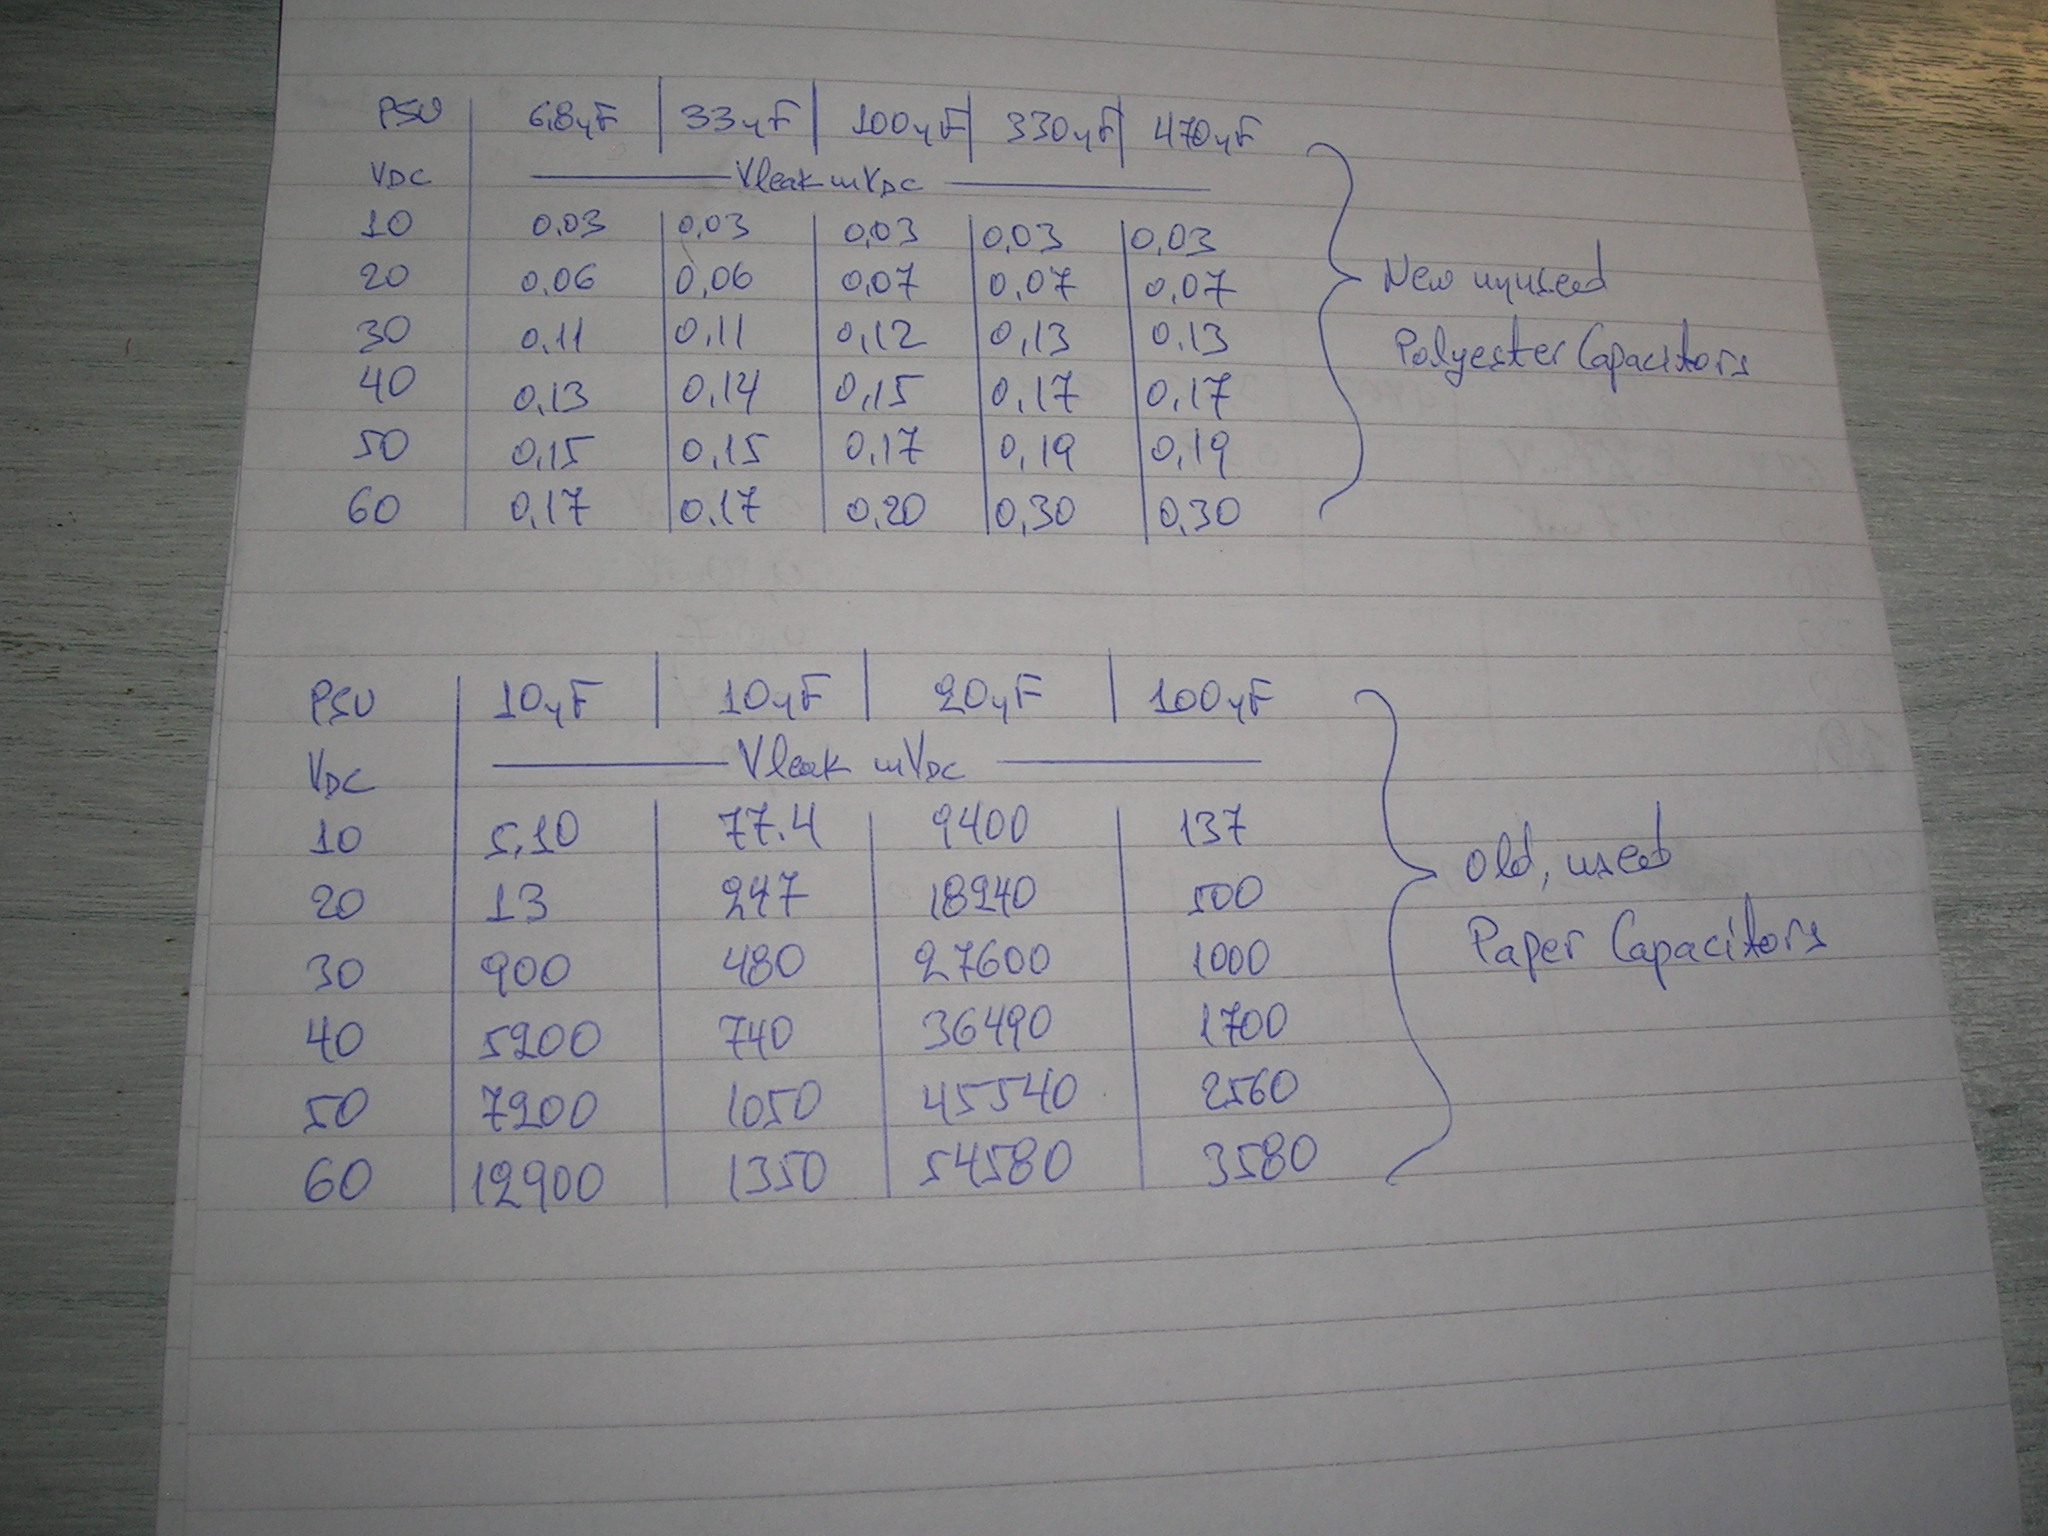 PSU 6,8µF 33µF 100µF 330µF 470µF
VDC Vleak mVDC
10 0,03 0,03 0,03 0,03 0,03
20 0,06 0,06 0,07 0,07 0,07
30 0,11 0,11 0,12 0,13 0,13
40 0,13 0,14 0,15 0,17 0,17
50 0,15 0,15 0,17 0,19 0,19
60 0,17 0,17 0,20 0,30 0,30
New unused
Polyester Capacitors
PSU 10µF 10µF 20µF 100µF
VDC Vleak mVDC
10 5,10 77.4 9400 137
20 13 247 18240 500
30 900 480 27600 1000
40 5200 740 36490 1700
50 7200 1050 45540 2560
60 12900 1350 54580 3580
Old, used
Paper Capacitors